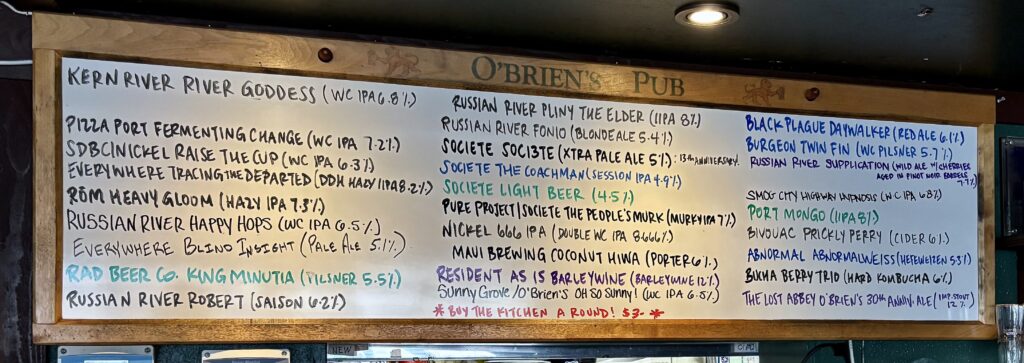 O'BRIEN'S PUB
KERN RIVER RIVER GODDESS (WC IPA 6.8%)
PIZZA PORT FERMENTING CHANGE (WC IPA 7.2%)
SDBC|NICKEL RAISE THE CUP (WC IPA 6.3%)
EVERYWHERE TRACING THE DEPARTED (DDH HAZY IIPA 8.2%)
RŌM HEAVY GLOOM (HAZY IPA 7.3%)
RUSSIAN RIVER HAPPY HOPS (WC IPA 6.5%)
EVERYWHERE BLIND INSIGHT (PALE ALE 5.1%)
RAD BEER CO. KING MINUTIA (PILSNER 5.5%)
RUSSIAN RIVER ROBERT (SAISON 6.2%)
RUSSIAN RIVER PLINY THE ELDER (IIPA 8%)
RUSSIAN RIVER FONIO (BLONDE ALE 5.4%)
SOCIETE SOCI3TE (XTRA PALE ALE 5%) : 13TH ANNIVERSARY!
SOCIETE THE COACHMAN (SESSION IPA 4.9%)
SOCIETE LIGHT BEER (4.5%)
PURE PROJECT|SOCIETE THE PEOPLE'S MURK (MURKY IPA 7%)
NICKEL 666 IPA (DOUBLE WC IPA 8.666%)
MAUI BREWING COCONUT HIWA (PORTER 6%)
RESIDENT AS IS BARLEYWINE (BARLEYWINE 12%)
Sunny Grove/O'Brien's OH SO Sunny! (WC IPA 6.5%)
* BUY THE KITCHEN A ROUND! $3- *
BLACK PLAGUE DAYWALKER (RED ALE 6.1%)
BURGEON TWIN FIN (WC PILSNER 5.7%)
RUSSIAN RIVER SUPPLICATION (WILD ALE W/CHERRIES
AGED IN PINOT NOIR BARRELS
7.7%)
SMOG CITY HIGHWAY HYPNOSIS (WC IPA 6.8%)
PORT MONGO (IIPA 8%)
BIVOUAC PRICKLY PERRY (CIDER 6%)
ABNORMAL ABNORMALWEISS (HEFEWEIZEN 5.3%)
BUXHA BERRY TRIO (HARD KOMBUCHA 6%)
THE LOST ABBEY O'BRIEN'S 30TH ANNIV. ALE (IMP. STOUT
12%)
NEW